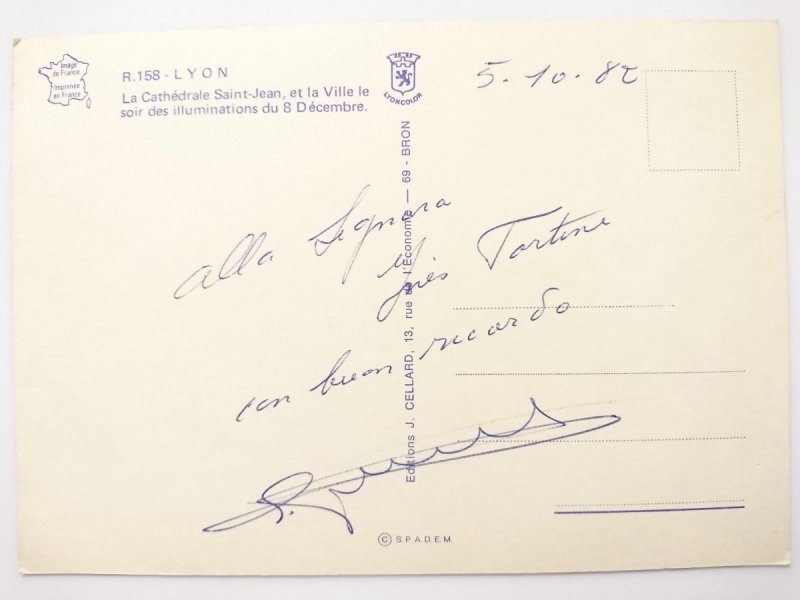 Image
de France
Imprimée
en France
R.158 - LYON
La Cathédrale Saint-Jean, et la Ville le
soir des illuminations du 8 Décembre.
LYONCOLOR
5-10-82
Editions J. CELLARD, 13, rue de l'Economie — 69 - BRON
alla Signora
Inès Tortine
con buon ricordo
© S.P.A.D.E.M.